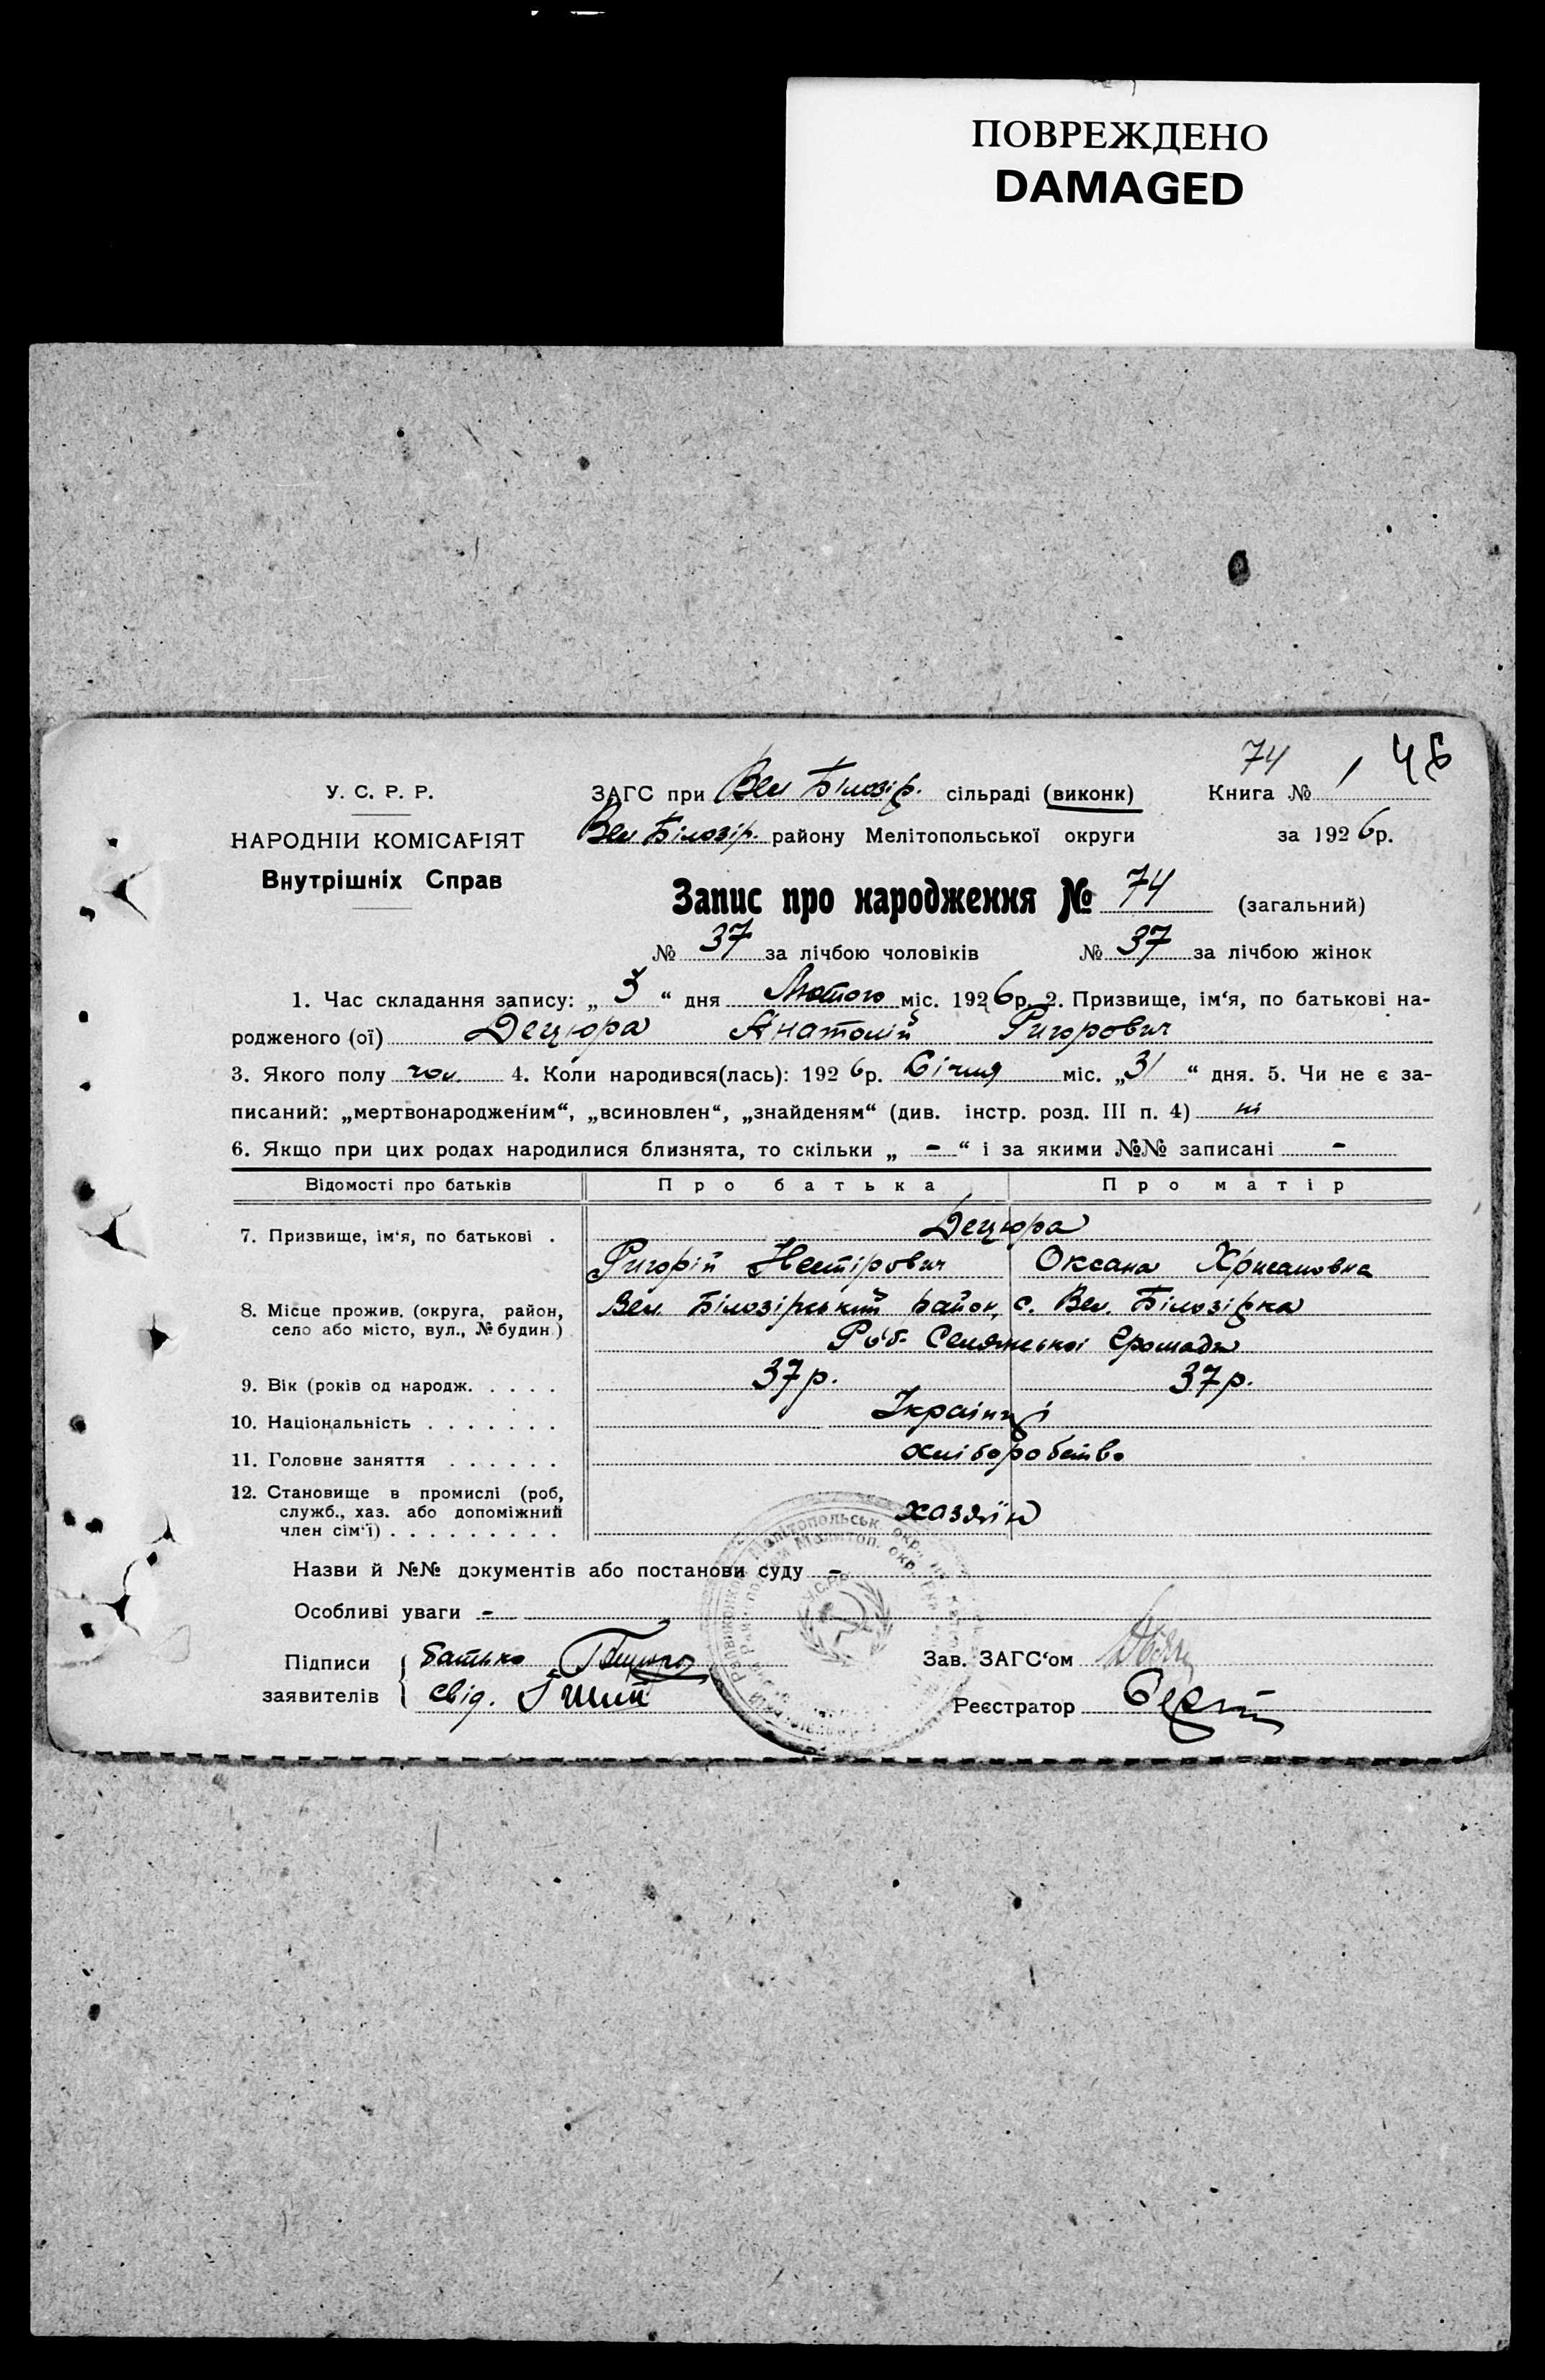 ПОВРЕЖДЕНО
DAMAGED
74 46
У. С. Р. Р. ЗАГС при Вел Білозір. сільраді (виконк) Книга № 1
НАРОДНІЙ КОМІСАРІЯТ Вел Білозір. району Мелітопольської округи за 1926р.
Внутрішніх Справ
Запис про народження № 74 (загальний)
№ 37 за лічбою чоловіків № 37 за лічбою жінок
1. Час складання запису: „ 3 “ дня Лютого міс. 1926р. 2. Призвище, ім‘я, по батькові на-
родженого (ої) Децюра Анатолій Ригорович
3. Якого полу чол. 4. Коли народився(лась): 1926р. Січня міс. „31“ дня. 5. Чи не є за-
писаний: „мертвонародженим“, „всиновлен“, „знайденям“ (див. інстр. розд. III п. 4) ні
6. Якщо при цих родах народилися близнята, то скільки „ - “ і за якими №№ записані -
Відомості про батьків Про батька Про матір
7. Призвище, ім‘я, по батькові . Децюра
Ригорій Нестірович Оксана Хрисановна
8. Місце прожив. (округа, район, Вел. Білозірський район, с. Вел. Білозірка
село або місто, вул., № будин.) Роб. Селянської Громади
9. Вік (років од народж. . . . . 37р. 37р.
10. Національність . . . . . . . Українці
11. Головне заняття . . . . . . хліборобство
12. Становище в промислі (роб,
служб., хаз. або допоміжний хазяїн
член сім‘ї) . . . . . . . . .
Назви й №№ документів або постанови суду -
Особливі уваги -
Підписи батько Зав. ЗАГС‘ом
заявителів свід. Реєстратор